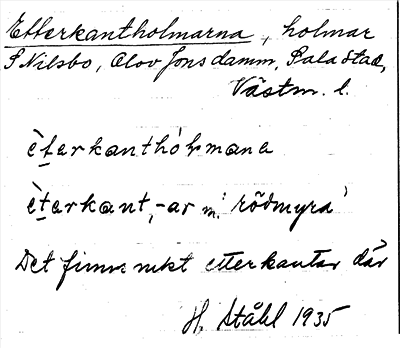 Etterkantholmarna, holmar
S Nilsbo, Olov Jonsdamm, Sala stad,
Västm. l.
èterkanthólmana
èterkant, -ar m. 'rödmyra'
Det finns rikt etterkantar där
H. Ståhl 1935